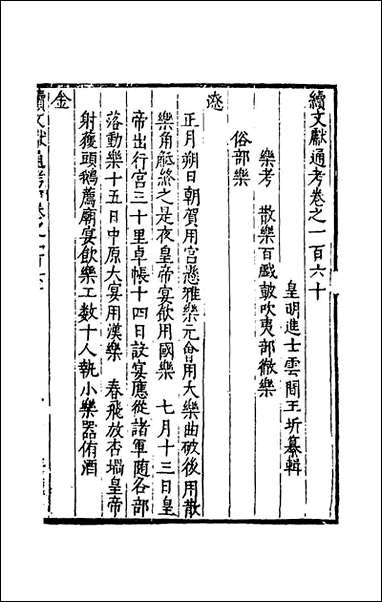 續文獻通考卷之一百六十
皇明進士雲間王圻纂輯
樂考 散樂百戲鼓吹夷部徹樂
俗部樂
遼
正月朔日朝賀用宮懸雅樂元會用大樂曲破後用散
樂角觝終之是夜皇帝宴飲用國樂 七月十三日皇
帝出行宮三十里卓帳十四日設宴應從諸軍隨各部
落動樂十五日中原大宴用漢樂 春飛放杏堝皇帝
射獲頭鵝薦廟宴飲樂工數十人執小樂器侑酒
金
續文獻通考